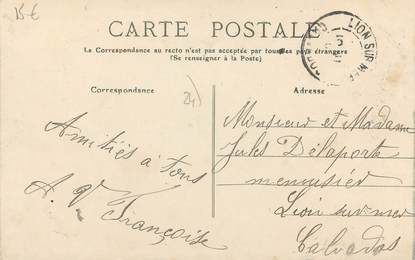 15 €
CARTE POSTALE
La Correspondance au recto n'est pas acceptée par tous les pays étrangers
(Se renseigner à la Poste)
LION SUR MER
CALVADOS
Correspondance
Adresse
Amitiés à tous
A. V. Françoise
Monsieur et Madame
Jules Delaporte
menuisier
Lion sur mer
Calvados